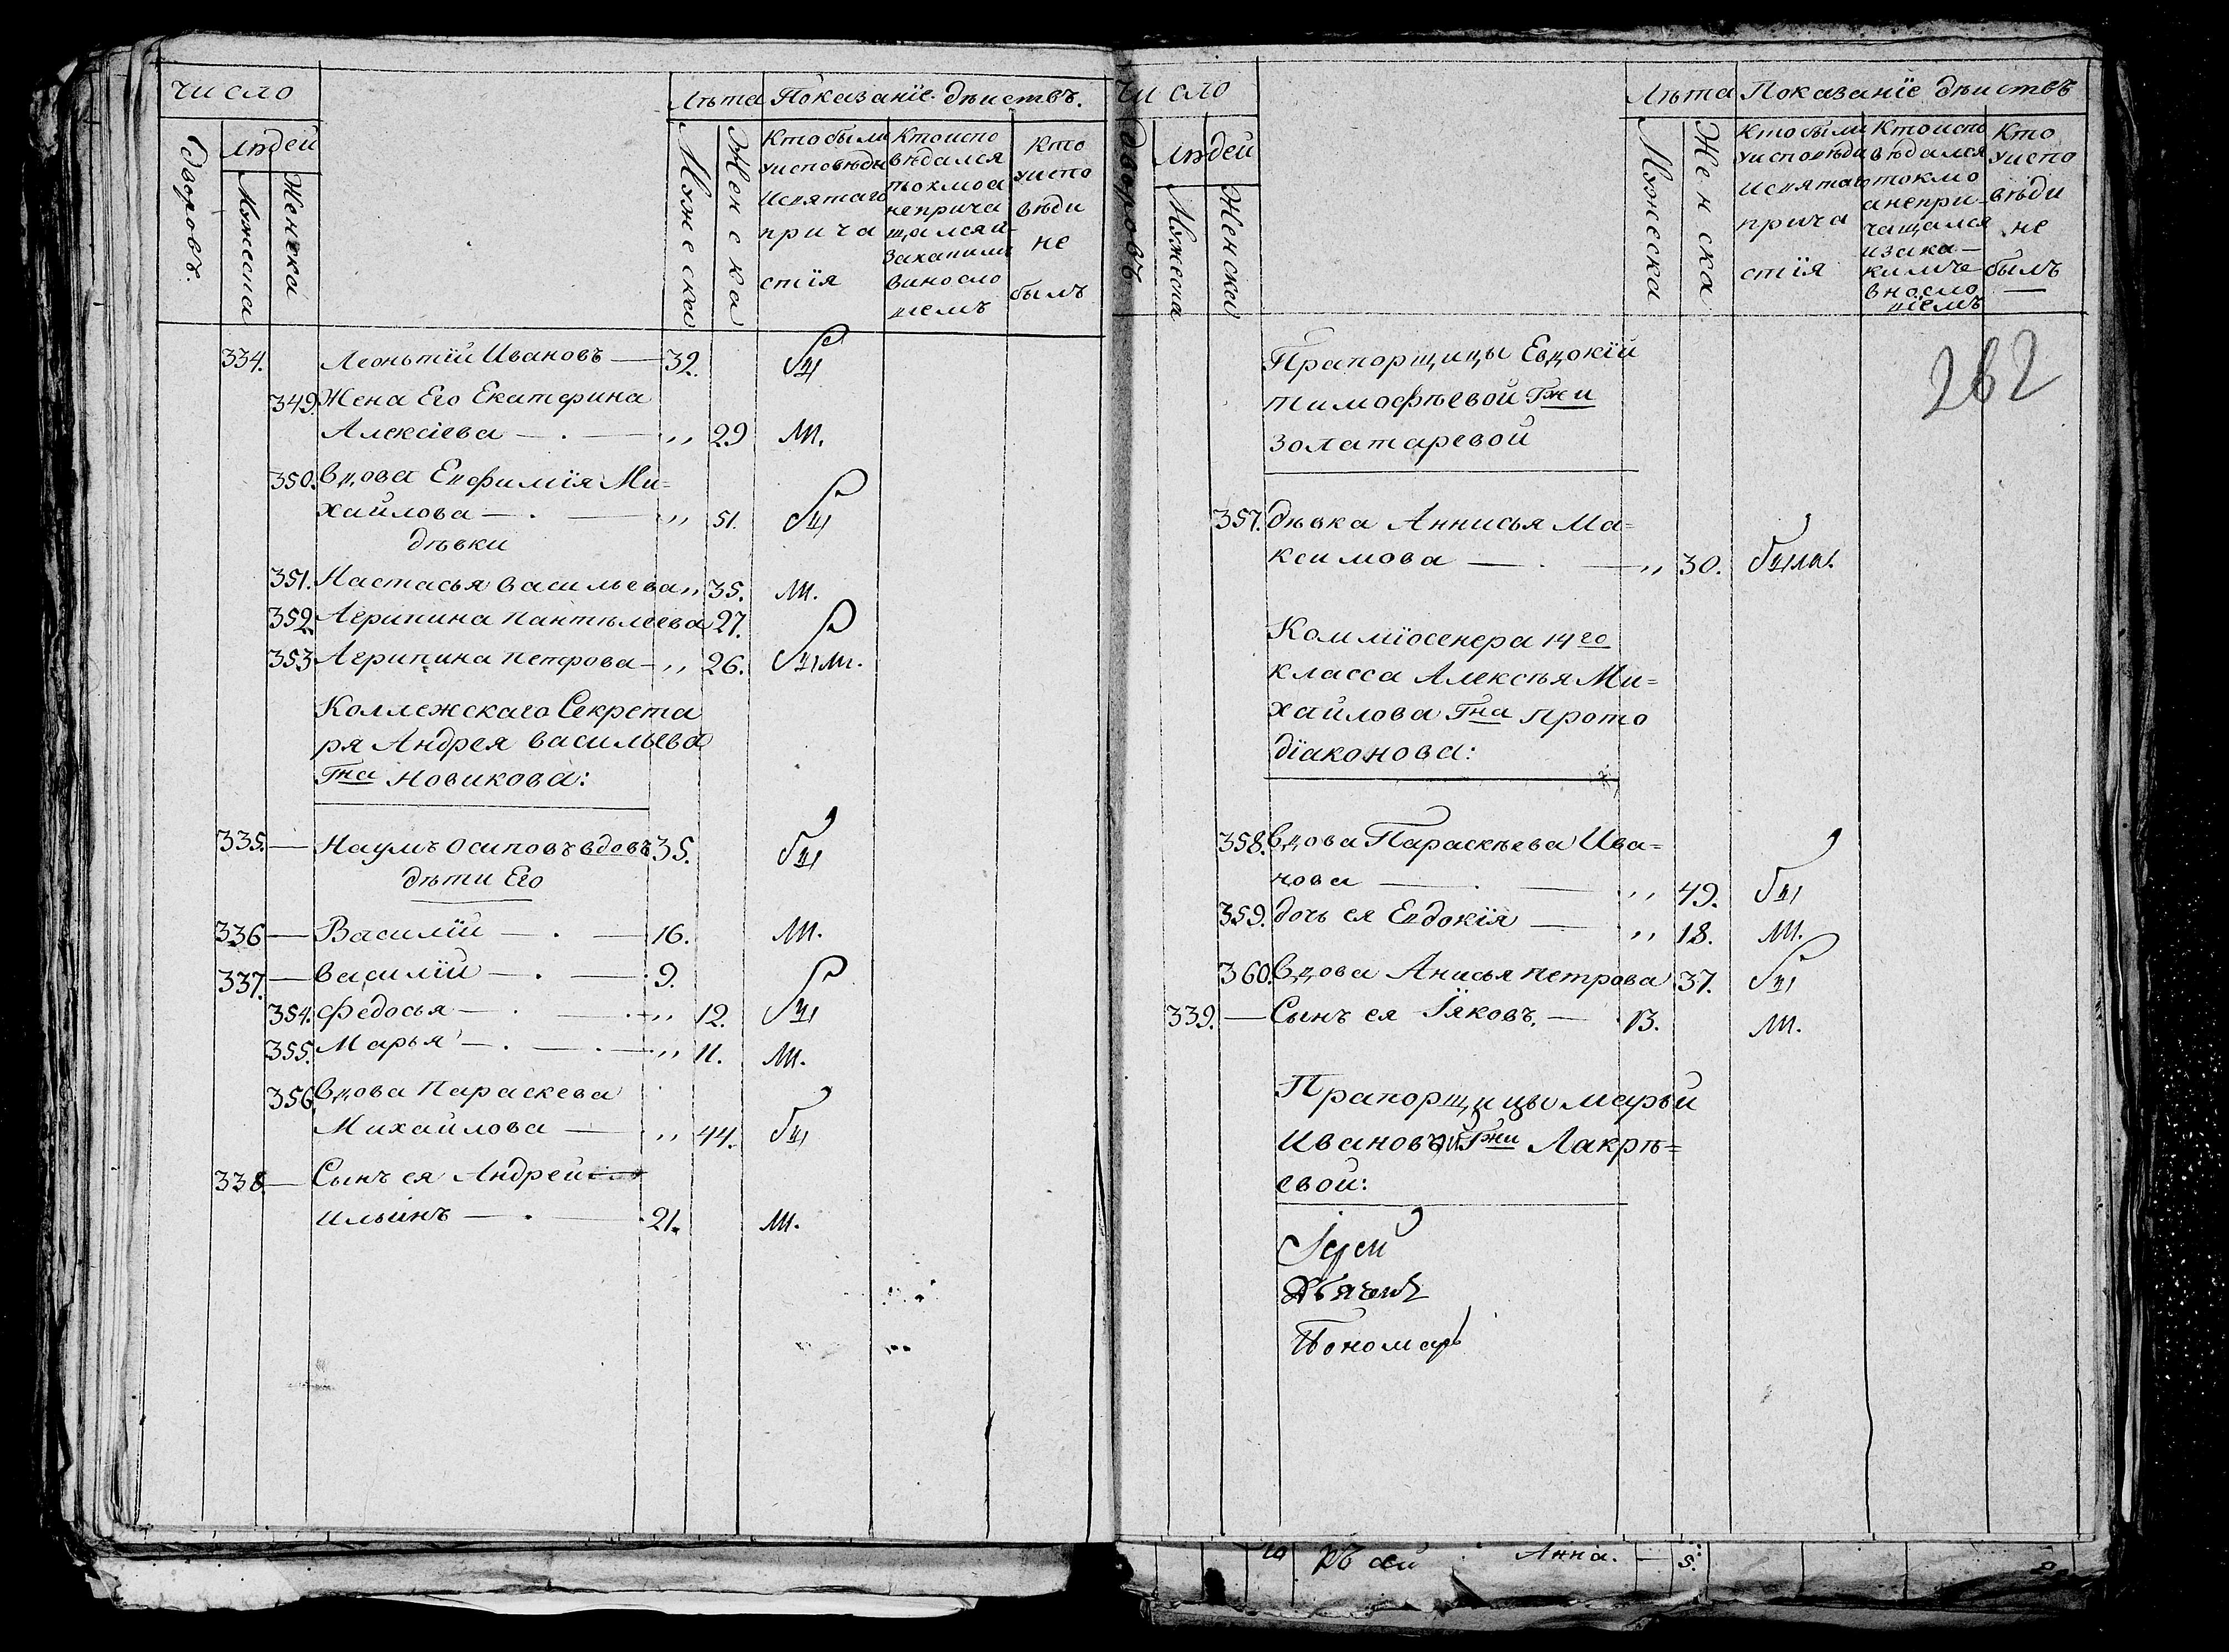 число
Лѣта Показанїе дѣиствъ.
Дворовъ.
людей
Мужеска
Женска
Мужеска
Женска
Кто были
уисповѣди
Исвятаго
прича
стїя
Ктоиспо
вѣдался
токмоа
неприча
щался и
Закаким
виносло
віемъ
Кто
уиспо
вѣди
не
былъ
334. Леоньтїй Ивановъ — 32.
349. Жена Его Екатерина
Алексіева — . — „ 29
350. вдова Евфимїя Ми=
хайлова — . — „ 51.
дѣвки
351. Настасья васильева „ 35.
352. Агрипина пантѣлеева 27.
353 Агрипина петрова — „ 26.
Коллежскаго Секрета
ря Андрея васильева
Гна Новикова:
335. — Наумъ Осиповъ вдовъ 35.
дѣти Его
336 — Василїй — . — 16.
337. — василїй — . — 9.
354. Федосья — . — „ 12.
355. Марья — . — . — „ 11.
356. вдова Параскева
Михайлова — „ 44.
338. — Сынъ ея Андрей
ильинъ — . — 21.
число
Лѣта Показанїе дѣиствъ
дворовъ
людей
Мужеска
Женска
Мужеска
Женска
Кто были
уисповѣди
Исвятаго
прича
стїя
Ктоиспо
вѣдался
токмо
анепри
чащался
изака
кимче
вносло
віемъ
Кто
уиспо
вѣди
не
былъ
—
262
Прапорщицы Евдокїи
тимофѣевой Гжи
Золатаревой
357. дѣвка Аннисья Ма=
ксимова — . — „ 30.
Коммїосенера 14го
класса Алексѣя Ми=
хайлова Гна прото
дїаконова:
358. вдова Параскѣева Ива=
нова — . — „ 49.
359. дочь ея Евдокїя — „ 18.
360. вдова Анисья петрова 37.
339. — Сынъ ея Їяковъ. — 13.
Прапорщицы марьи
Ивановой Гжи Лакрѣ=
евой:
Іерей
Дьячекъ
Пономарь
Анна. — 5.